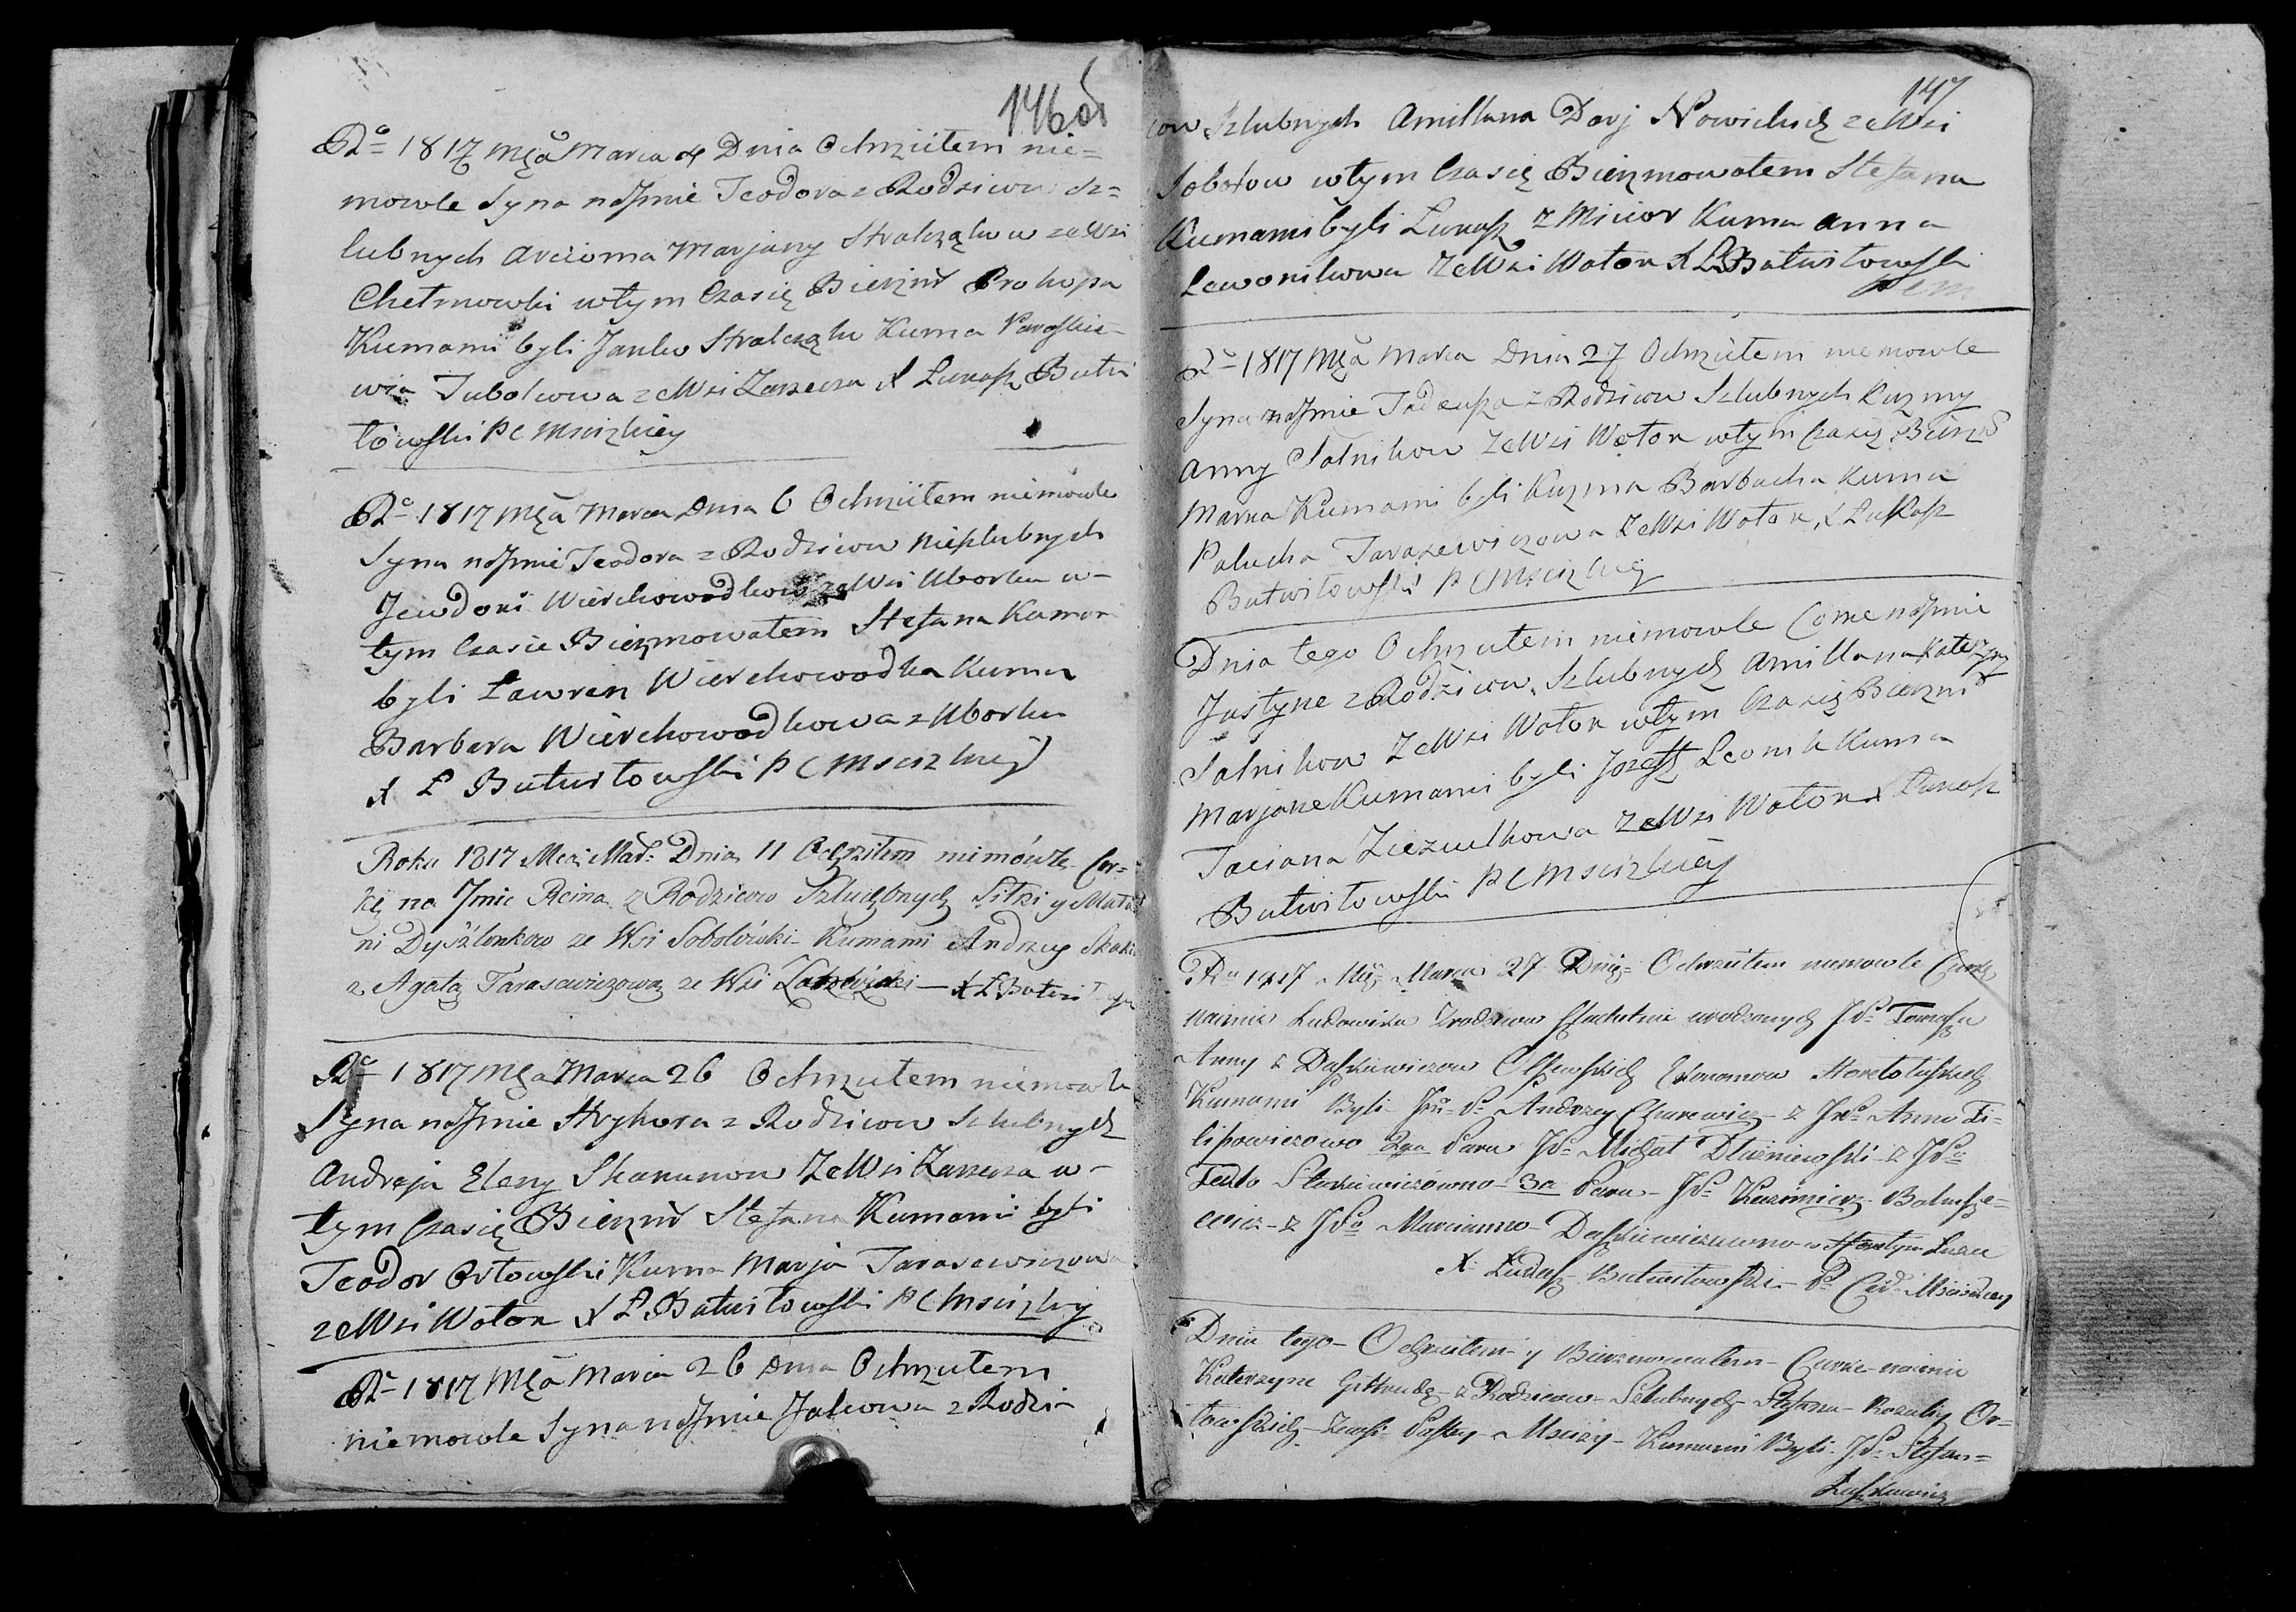 146об
Rº 1817 Mca Marca 4 Dnia Ochrzciłem nie=
mowle Syna na Jmie Teodora z Rodzicow sz=
lubnych Arcioma Marjany Stralcząkow ze Wsi
Chełmowki w tym Czasię Bierzm Prokopa
Kumami byli Janko Stralcząk Kuma Paroskie-
wia Tubolcowa ze Wsi Zarzecza X Łukasz Butwi
łowski P C Mscizkiey
Rº 1817 Mca Marca Dnia 6 Ochrzciłem niemowle
Syna na Jmie Teodora z Rodzicow nieszlubnych
Jewdoki Wierchowodkow ze Wsi Uborku w-
tym Czasie Bierzmowałem Stefana Kumam
byli Ławren Wierchowodka Kuma
Barbara Wierchowodkowa z Uborku
X Ł Butwiłowski P C Mscizkiey
Roku 1817 Mca Mar: Dnia 11 Ochrzciłem niemówlę Cor=
kę na Jmie Reina z Rodzicow Szlubnych Sitki y Mała
ni Dyszlonkow ze Wsi Sobolowki Kumami Andrzey Skaku
z Agatą Tarasewiczową ze Wsi — X Ł Butwiłowski
Rº 1817 Mca Marca 26 Ochrzciłem niemowle
Syna na Jmie Hryhora z Rodzicow Szlubnych
Andreja Eleny Skakunow Ze Wsi Zarzecza w-
tym Czasię Bierzm Stefana Kumami byli
Teodor Orłowski Kuma Marja Tarasewiczowa
ze Wsi Wołok X Ł Butwiłowski P C Mscizkiey
Rº 1817 Mca Marca 26 Dnia Ochrzciłem
niemowle Syna na Jmie Jakowa z Rodzi-
147
cow Szlubnych Amillana Darj Nowickich ze Wsi
Sobolow w tym Czasię Bierzmowałem Stefana
Kumami byli Łukasz Zmicior Kuma Anna
Lewonikowa Ze Wsi Wołok X Ł Butwiłowski
P C M
Rº 1817 Mca Marca Dnia 27 Ochrzciłem niemowle
Syna na Jmie Tadeusza z Rodzicow Szlubnych Kuzmy
Anny Salnikow Ze Wsi Wołok w tym Czasię Bierzm
Marka Kumami byli Kuzma Barbacha Kuma
Palucha Tarasewiczowa Ze Wsi Wołok X Łukasz
Butwiłowski P C Mscizkiey
Dnia tego Ochrzciłem niemowle Corke na Jmie
Justyne z Rodzicow Szlubnych Amillana Katerzyny
Salnikow Ze Wsi Wołok w tym Czasię Bierzm
Marjane Kumami byli Jozeff Leonik Kuma
Taciana Ziezulkowa Ze Wsi Wołok X Łukasz
Butwiłowski P C Mscizkiey
Rº 1817 Mca Marca 27 Dnia Ochrzciłem niemowle Curkę
na imie Ludowika z rodzicow szlachetnie urodzonych JP: Tomasza
Anny z Daszkiewiczow Ekonomow
Kumami Byli JP: Andrzey z JP: Anna Fi=
lipowiczowo 2ga Para JP: Michał z JP:
Teklo 3a Para JP: Kazimierz
z JP: Marianno Daszkiewiczowno
X Łukasz Butwiłowski P Mscizkiey
Dnia tego Ochrzciłem y Bierzmowałem Curke na imie
Katerzyne Gertrudę z Rodzicow Szlubnych Rozalij Or=
łowskich Mscizy Kumami Byli JP: Stefan=
Daszkiewicz